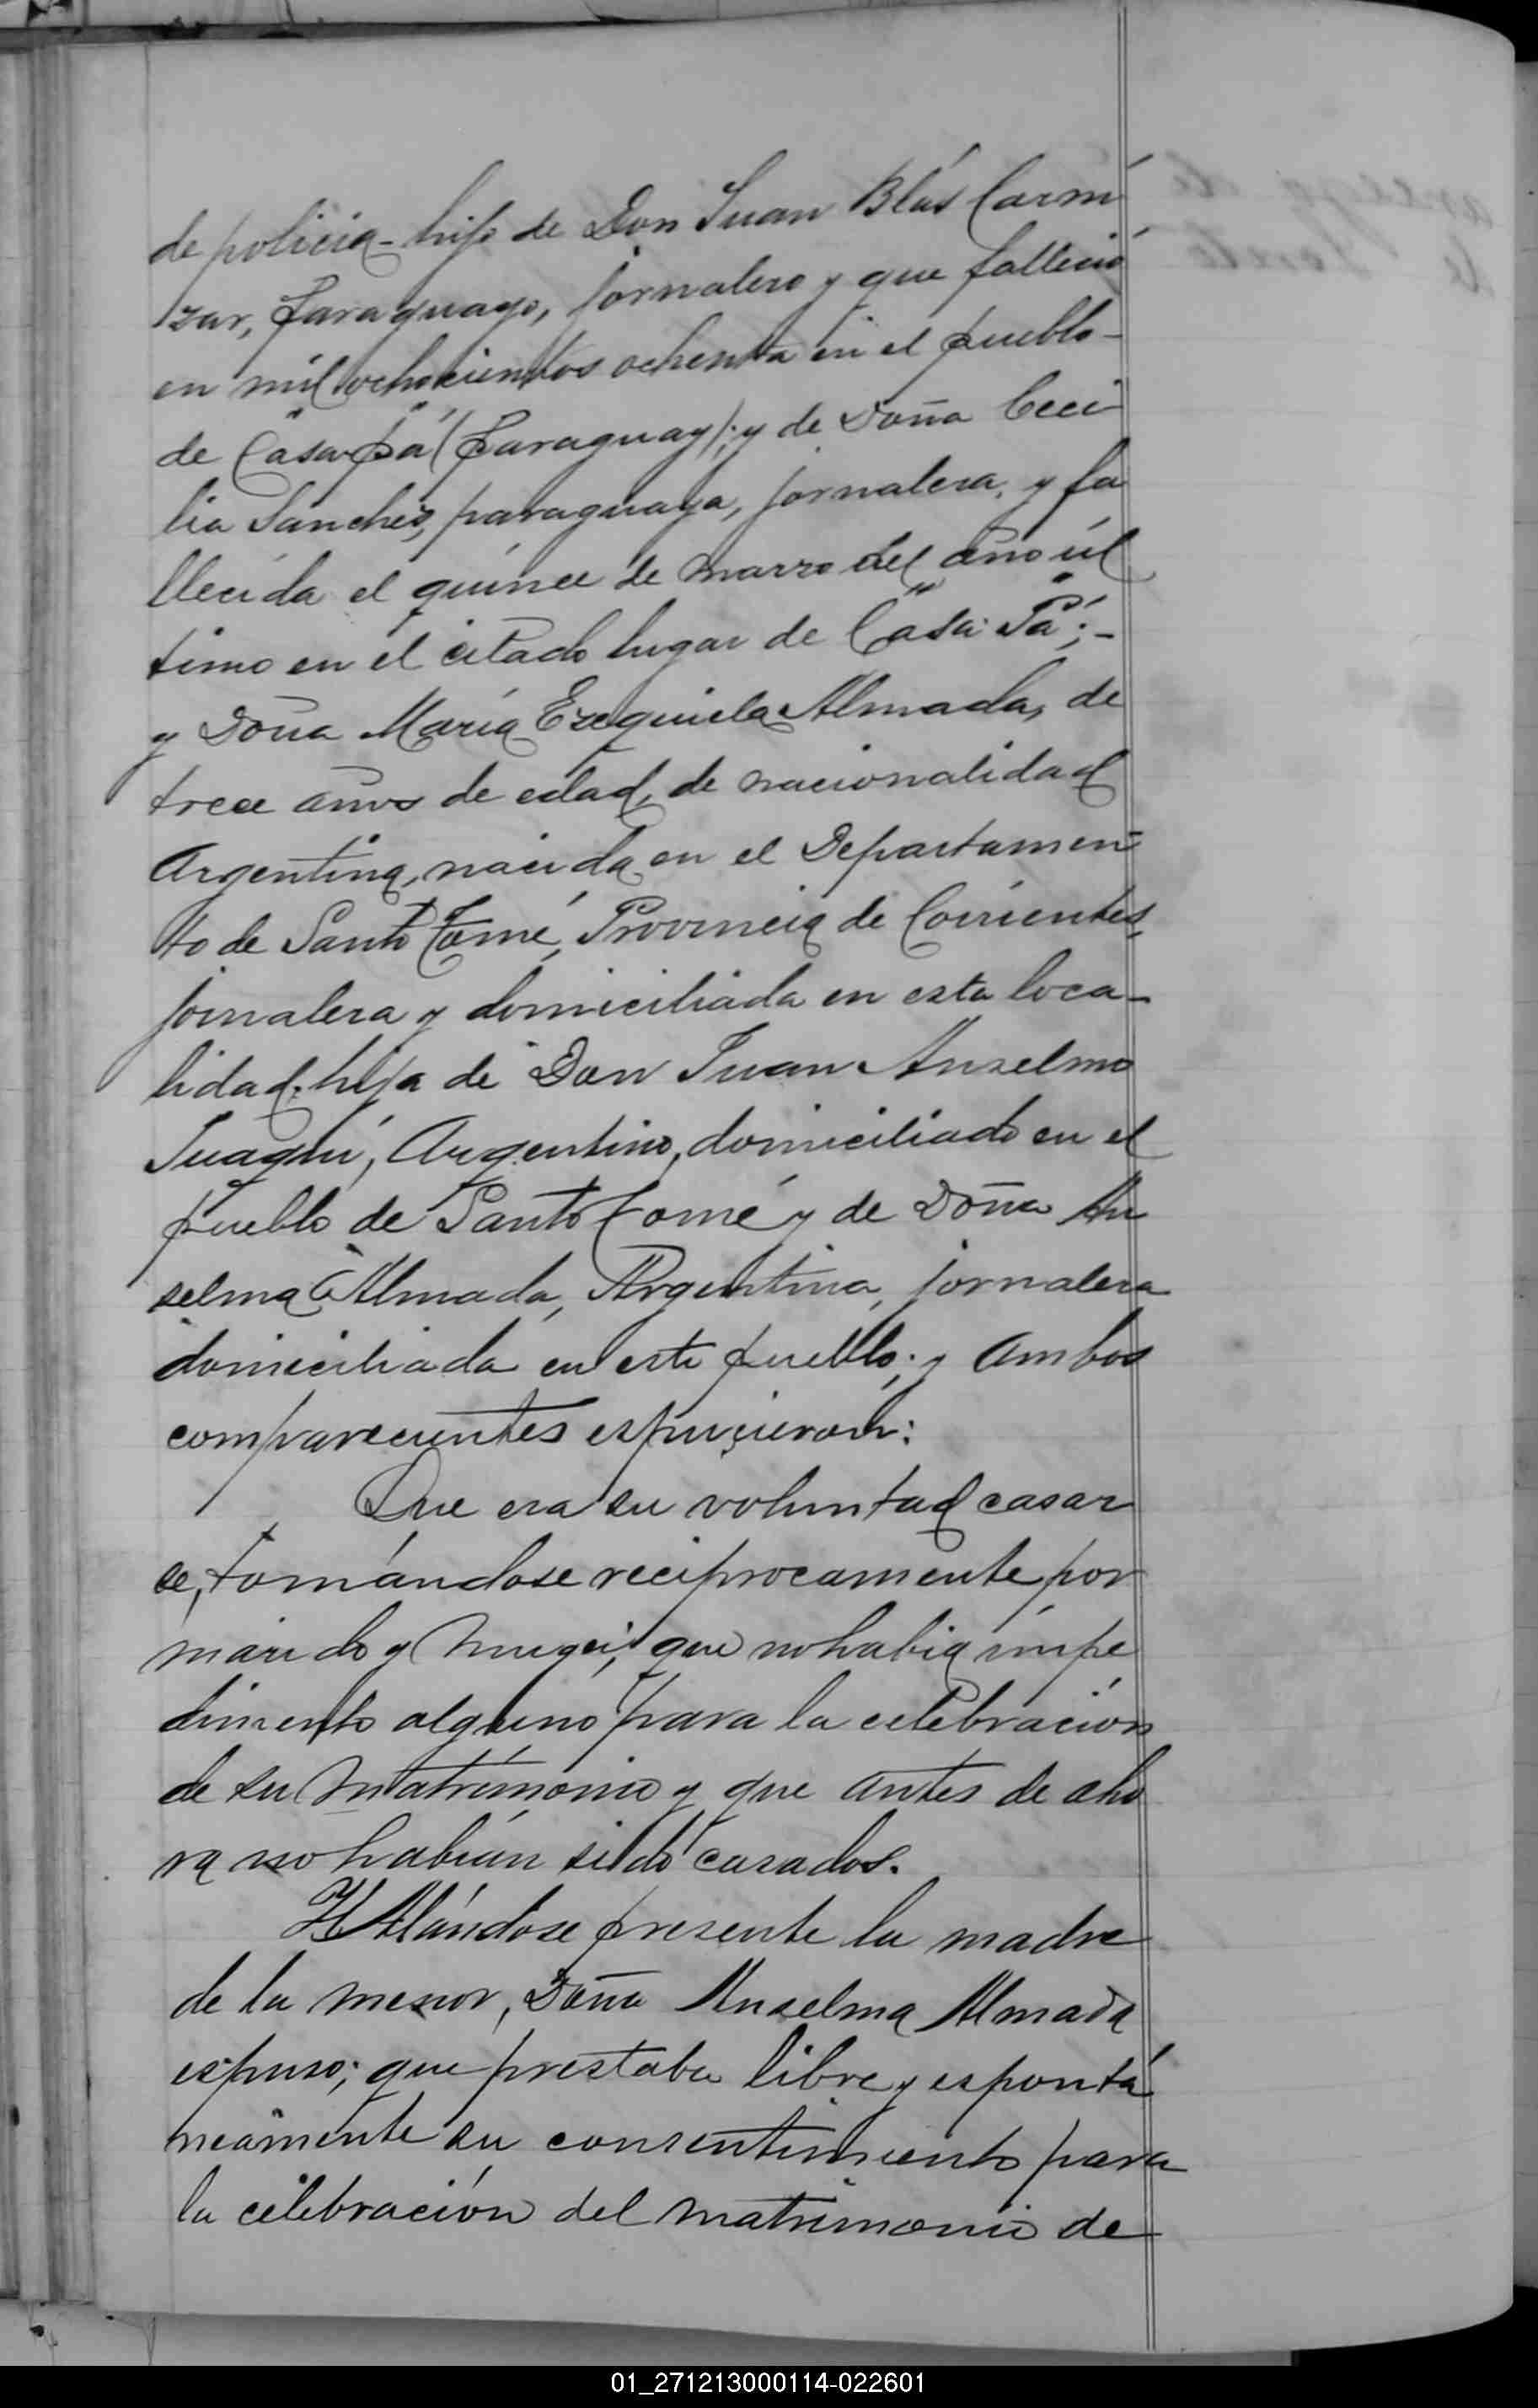 de policia - hijo de Don Juan Blás Carmí
zar, Paraguayo, jornalero y que falleció
en mil ochocientos ochenta en el pueblo -
de Casa-pá (Paraguay); y de Doña Ceci
lia Sanchez, paraguaya, jornalera, y fa
llecida el quince de Marzo del año úl
timo en el citado lugar de "Casa-Pá"; -
y Doña María Ezequiela Almada, de
trece años de edad, de nacionalidad
Argentina, nacida en el Departamen-
to de Santo Tomé, Provincia de Corrientes,
jornalera y domiciliada en esta loca-
lidad, hija de Don Juan Anselmo
Argentino, domiciliado en el
pueblo de Santo Tomé y de Doña An
selma Almada, Argentina, jornalera
domiciliada en este pueblo; y ambos
comparecientes espucieron:
Que era su voluntad casar
se, tomándose reciprocamente por
marido y muger, que no habia impe
dimento alguno para la celebración
de su matrimonio y que antes de aho
ra no habían sido casados.
Hallándose presente la madre
de la menor, Doña Anselma Almada
espuso; que prestaba libre y espontá
neamente su consentimiento para
la celebración del matrimonio de
01_271213000114-022601